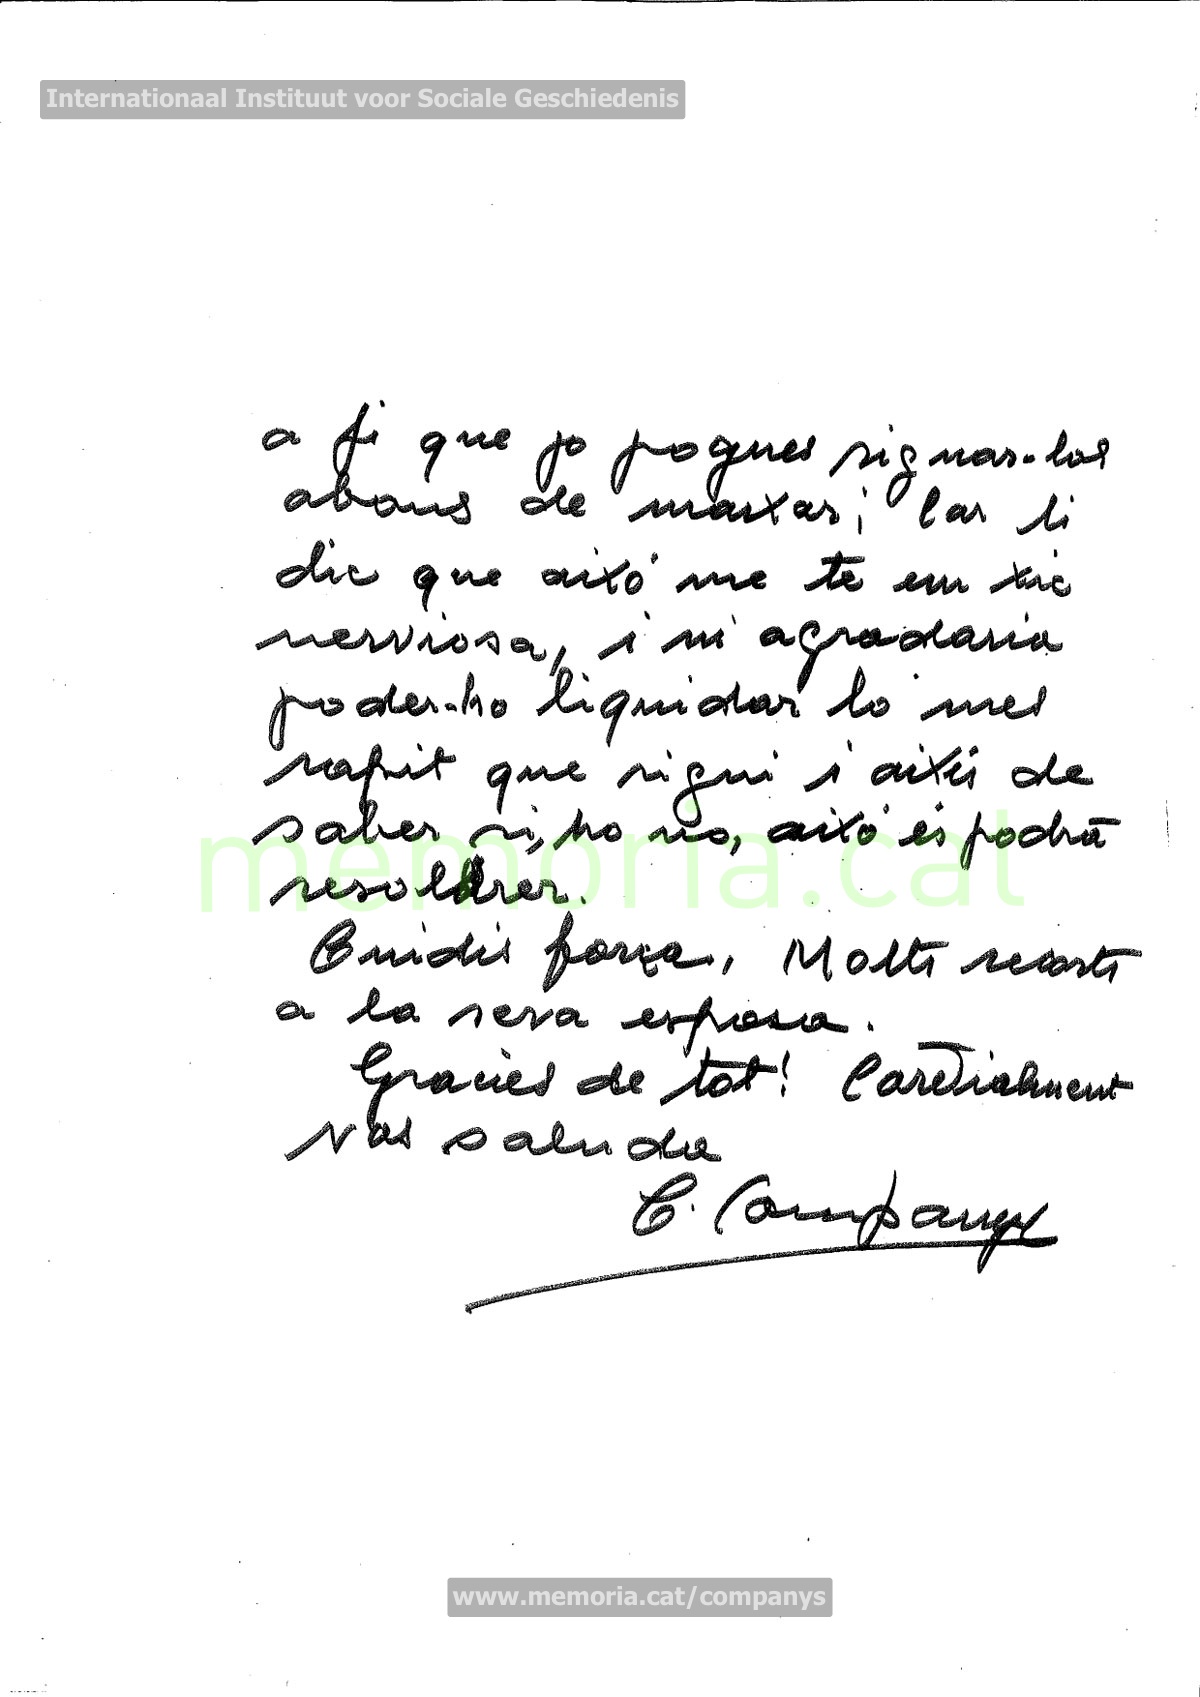 Internationaal Instituut voor Sociale Geschiedenis
a fi que jo pogues signar-los
abans de marxar; Car li
dic que aixó me te em xic
nerviosa, i m'agradaria
poder-ho liquidar lo mes
rapit que sigui i aixís de
saber si, ho no, aixó es podrà
resoldrer.
Cuidis força, Molts recorts
a la seva esposa.
Gracies de tot! Cardialment
vos saluda
C. Companys
memoria.cat
www.memoria.cat/companys